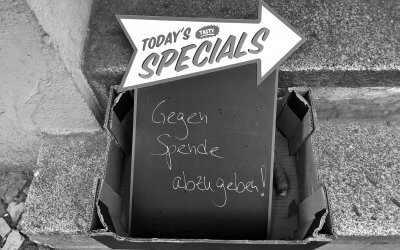 TODAY'S
TASTY
SPECIALS
Gegen
Spende
abzugeben!